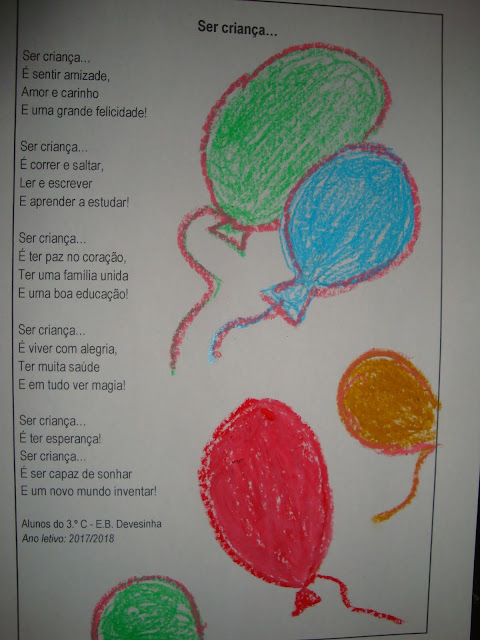 Ser criança...
Ser criança...
É sentir amizade,
Amor e carinho
E uma grande felicidade!
Ser criança...
É correr e saltar,
Ler e escrever
E aprender a estudar!
Ser criança...
É ter paz no coração,
Ter uma família unida
E uma boa educação!
Ser criança...
É viver com alegria,
Ter muita saúde
E em tudo ver magia!
Ser criança...
É ter esperança!
Ser criança...
É ser capaz de sonhar
E um novo mundo inventar!
Alunos do 3.º C - E.B. Devesinha
Ano letivo: 2017/2018